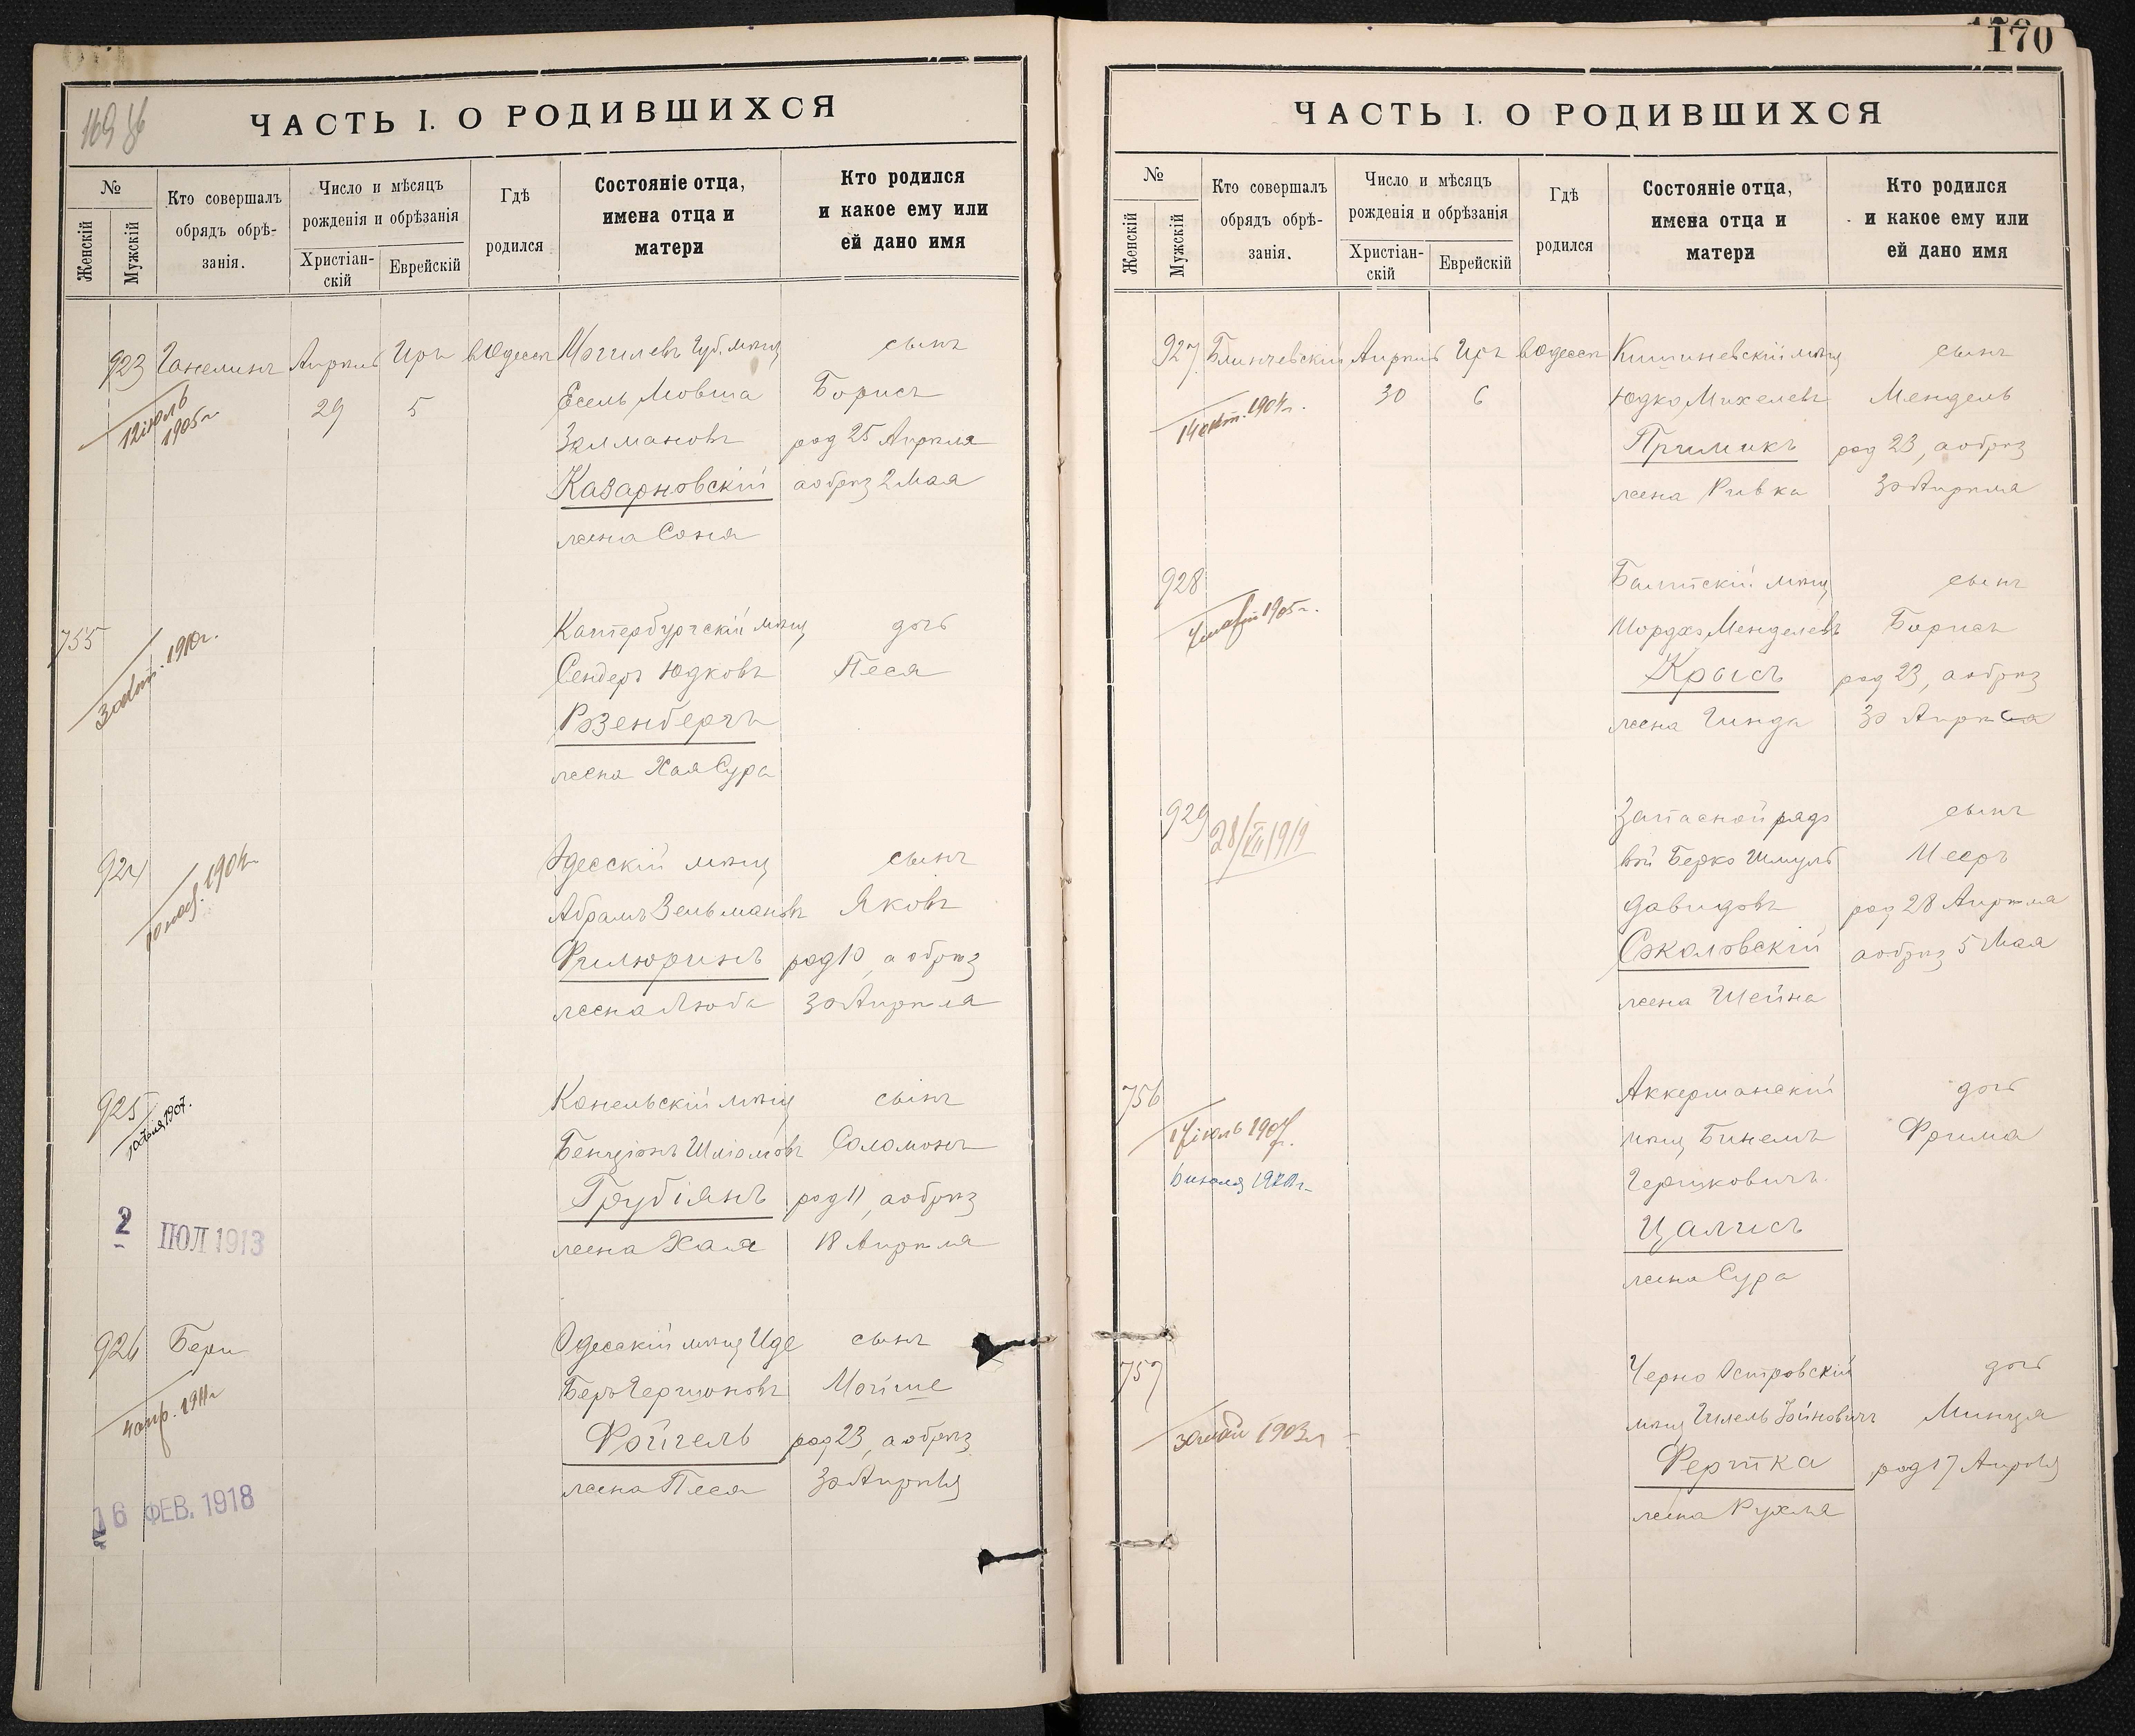 ЧАСТЬ I. О РОДИВШИХСЯ
№
Женскій
Мужскій
Кто совершалъ
обрядъ обрѣ-
занія.
Число и мѣсяцъ
рожденія и обрѣзанія
Христіан-
скій
Еврейскій
Гдѣ
родился
Состояніе отца,
имена отца и
матери
Кто родился
и какое ему или
ей дано имя
923 Ганелинъ Апрѣль Иръ въ Одессѣ Могилевъ Губ. мѣщ сынъ
12 іюль
1905 г
29 5 Есель Мовша Борисъ
Залмановъ род 25 Апрѣля
Казарновскій а обрѣз 2 Мая
жена Соня
755 Катербургскій мѣщ дочь
1910 г.
Сендеръ Юдковъ Песя
Розенбергъ
жена Хая Сура
924 Одесскій мѣщ сынъ
1904 г
Абрамъ Зельмановъ Яковъ
Филюринъ род 10, а обрѣз
жена Люба 30 Апрѣля
925 Канельскій мѣщ сынъ
1907.
Бенціонъ Шліомовъ Соломонъ
Грубіянъ род 11, а обрѣз
жена Хая 18 Апрѣля
2 ІЮЛ 1913
926 Бери Одесскій мѣщ Иде сынъ
4 апр. 1911 г
Беръ Гершоновъ Мойше
Фойгель род 23, а обрѣз
жена Песя 30 Апрѣля
16 ФЕВ. 1918
170
ЧАСТЬ I. О РОДИВШИХСЯ
№
Женскій
Мужскій
Кто совершалъ
обрядъ обрѣ-
занія.
Число и мѣсяцъ
рожденія и обрѣзанія
Христіан-
скій
Еврейскій
Гдѣ
родился
Состояніе отца,
имена отца и
матери
Кто родился
и какое ему или
ей дано имя
927 Блинчевскій Апрѣль Иръ въ Одессѣ Кишиневскій мѣщ сынъ
14 1904 г.
30 6 Юдко Михелевъ Мендель
Примикъ род 23, а обрѣз
жена Ривка 30 Апрѣля
928 Балтскій мѣщ сынъ
1905 г.
Мордхо Менделевъ Борисъ
Крысъ род 23, а обрѣз
жена Гинда 30 Апрѣля
929 Запасной рядо сынъ
28/VII 1919
вой Берко Шмуль Мееръ
Давидовъ род 28 Апрѣля
Соколовскій а обрѣз 5 Мая
жена Шейна
756 Аккерманскій дочь
17 іюль 1904 г.
мѣщ Бинемъ Фрима
Гершковичъ
Цалисъ
жена Сура
757 Черно Островскій дочь
мѣщ Шлель Іойновичъ Минця
Фертка род 17 Апрѣля
жена Рухля